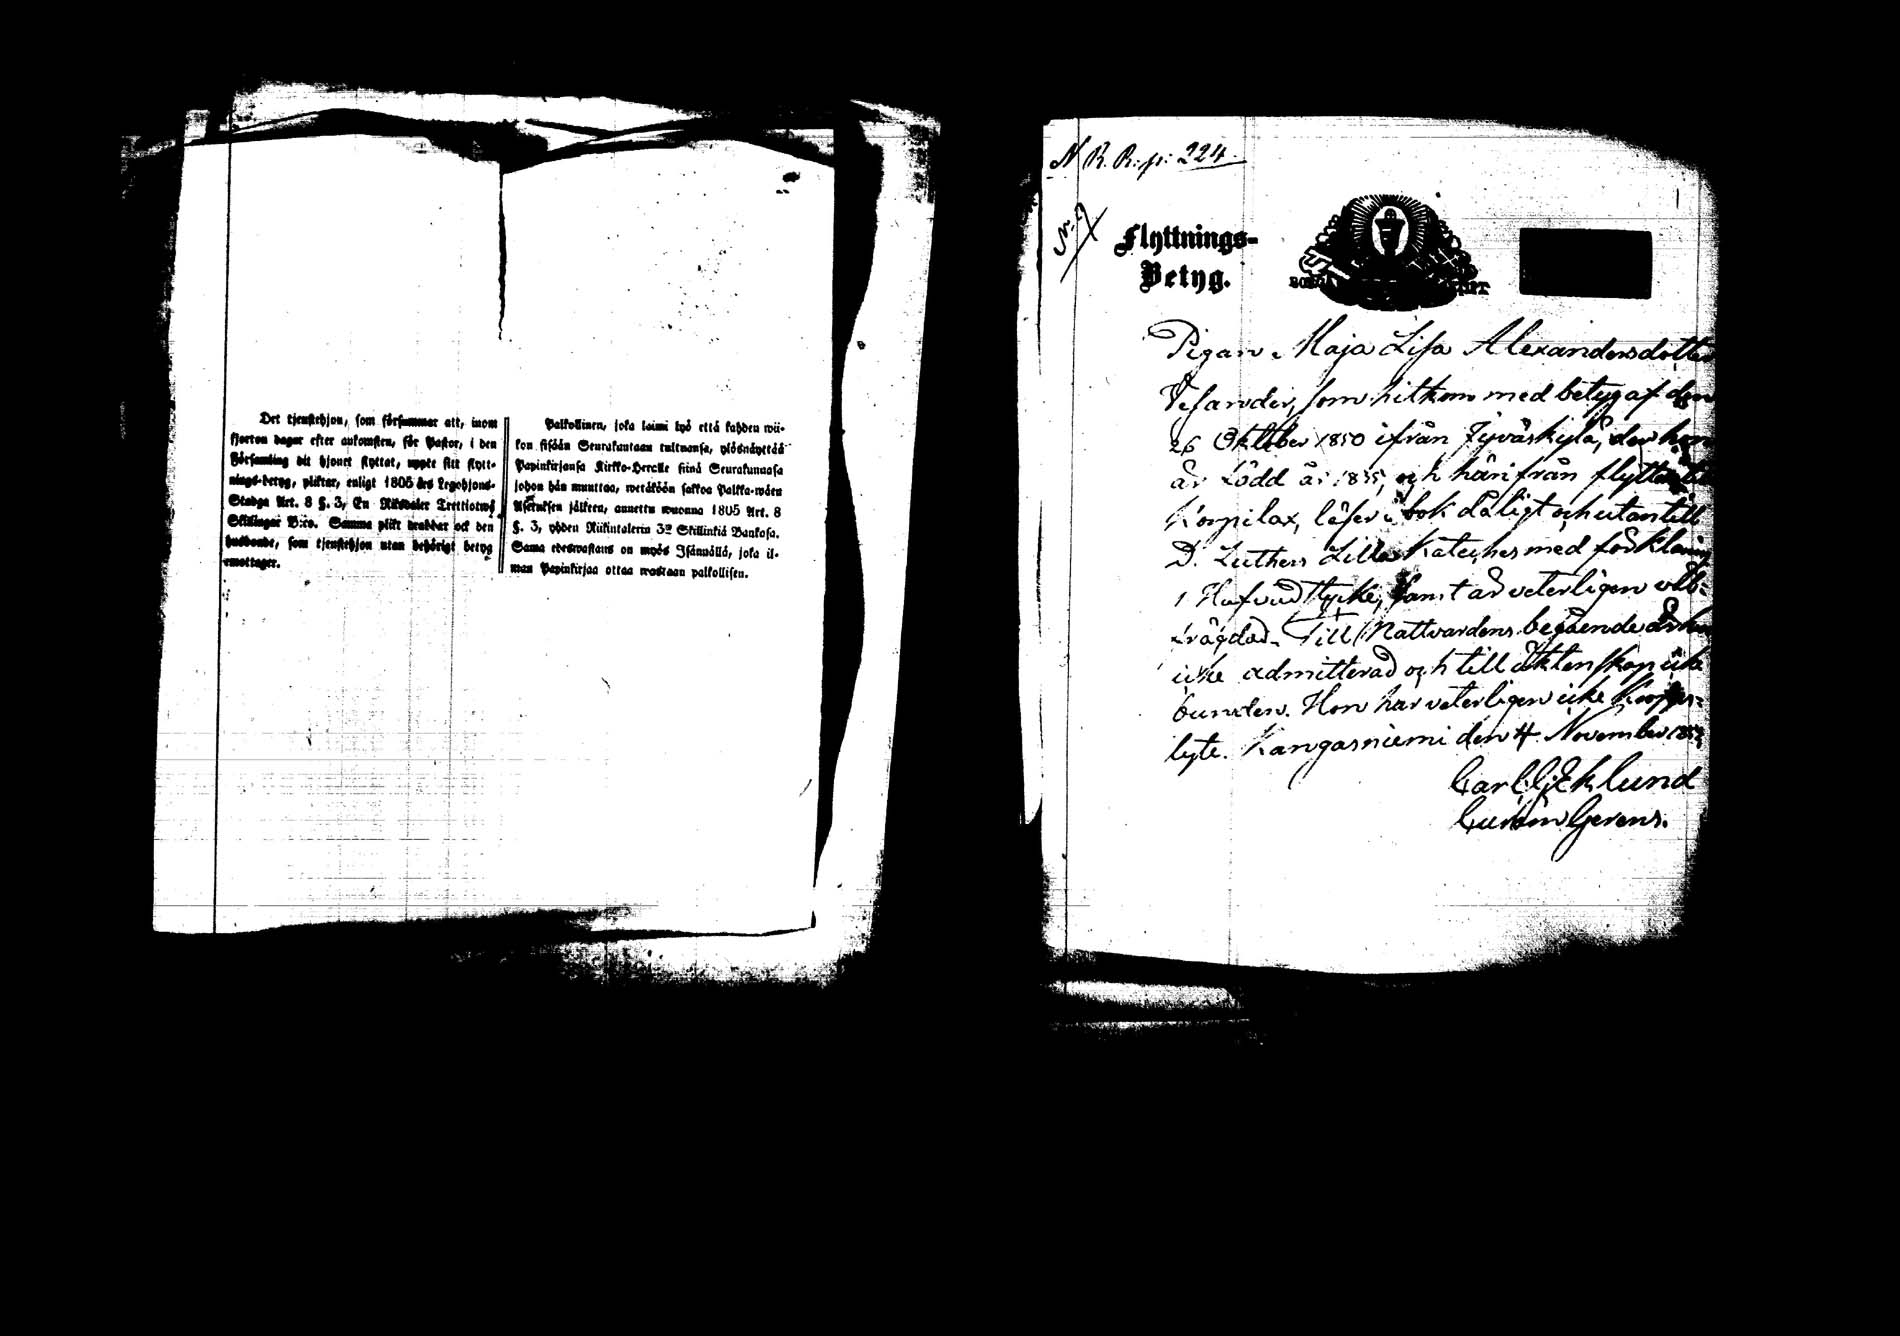 Det tjenstehjon, som försummar att, inom
fjorton dagar efter ankomsten, för Pastor, i den
Församling dit hjonet flyttat, uppte sitt flytt-
nings-betyg, pliktar, enligt 1805 års Legohjons-
Stadga Art. 8 §. 3, En Riksdaler Trettiotwå
Skillingar B:co. Samma plikt drabbar ock den
husbonde, som tjenstehjon utan behörigt betyg
emottager.
Palkollinen, joka laimi lyö että kahden wii-
kon sisään Seurakuntaan tultuansa, ylösnäyttää
Papinkirjansa Kirkko-Herralle siinä Seurakunnasa
johon hän muuttaa, wetäköön sakkoa Palkka-wäen
Asetuksen jälkeen, annettu wuonna 1805 Art. 8
§. 3, yhden Riikintalerin 32 Skillinkiä Bankosa.
Sama edeswastaus on myös Isännällä, joka il-
man Papinkirjaa ottaa wastaan palkollisen.
N R. R. p: 224.
Flyttnings-
Betyg.
Pigan Maja Lisa Alexandersdotter
Vesander, som hitkom med betyg af den
26 Oktober 1850 ifrån Jyväskylä, der hon
är född år 1835, och härifrån flyttar till
Korpilax, läser i bok dåligt och utantill
D. Luthers Lilla Kateches med förklaring
1 Hufvudstycke, samt är veterligen väl-
frägdad. Till Nattvardens begående är hon
icke admitterad och till äktenskap icke
bunden. Hon har veterligen icke Kropps-
lyte. Kangasniemi den 4 November
Carl Eklund